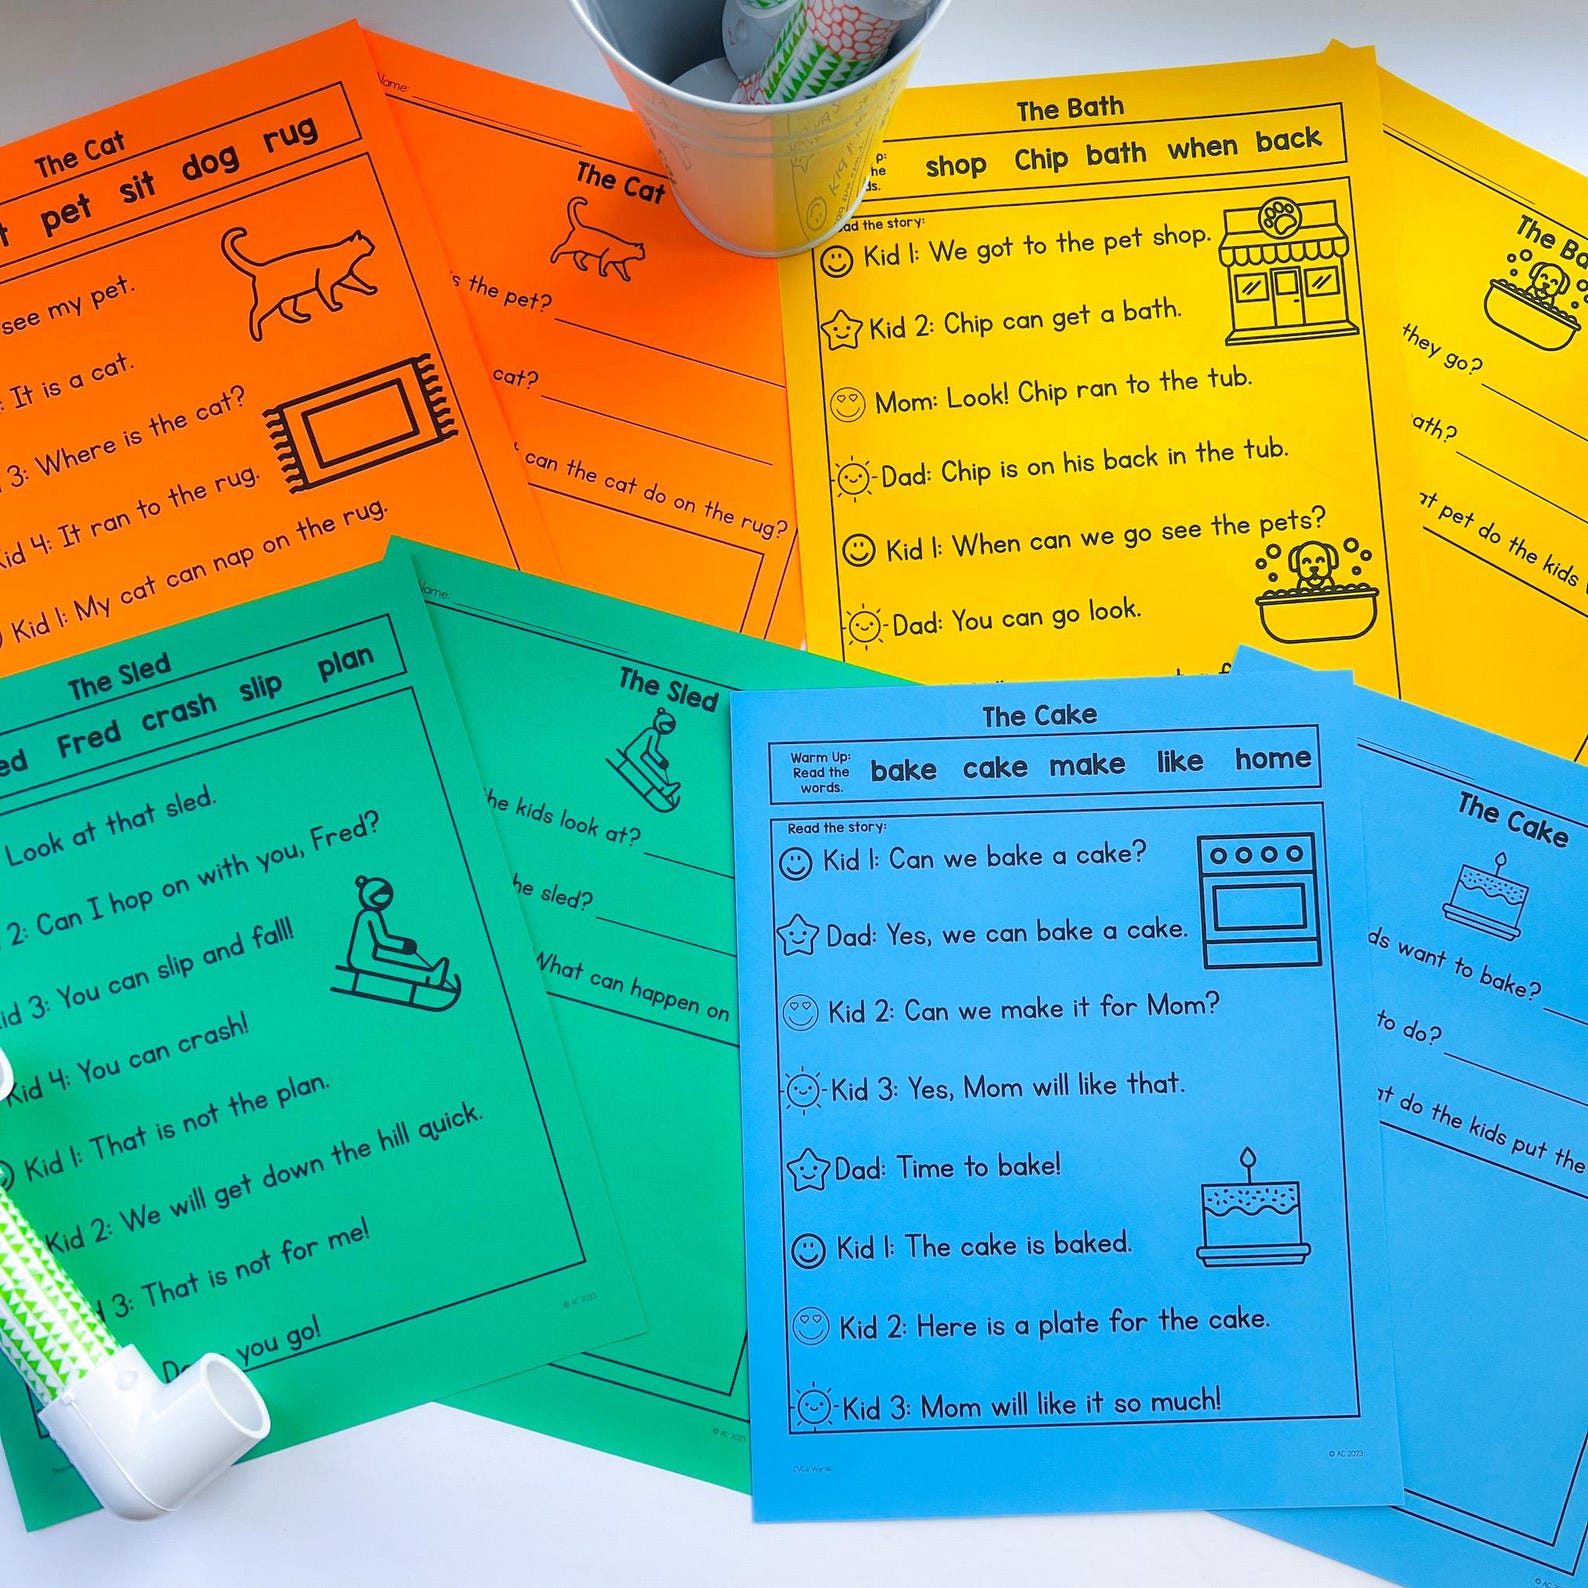 The Cat
pet sit dog rug
see my pet.
: It is a cat.
3: Where is the cat?
Kid 4: It ran to the rug.
Kid 1: My cat can nap on the rug.
Name:
The Cat
the pet?
cat?
can the cat do on the rug?
The Bath
shop Chip bath when back
the story:
Kid 1: We got to the pet shop.
Kid 2: Chip can get a bath.
Mom: Look! Chip ran to the tub.
Dad: Chip is on his back in the tub.
Kid 1: When can we go see the pets?
Dad: You can go look.
The
they go?
pet do the kids
The Sled
Fred crash slip plan
Look at that sled.
2: Can I hop on with you, Fred?
Kid 3: You can slip and fall!
Kid 4: You can crash!
Kid 1: That is not the plan.
Kid 2: We will get down the hill quick.
3: That is not for me!
you go!
© AC 2023
Name:
The Sled
the kids look at?
the sled?
What can happen on
© AC 2023
The Cake
Warm Up:
Read the
words.
bake cake make like home
Read the story:
Kid 1: Can we bake a cake?
Dad: Yes, we can bake a cake.
Kid 2: Can we make it for Mom?
Kid 3: Yes, Mom will like that.
Dad: Time to bake!
Kid 1: The cake is baked.
Kid 2: Here is a plate for the cake.
Kid 3: Mom will like it so much!
CVCe Words
© AC 2023
The Cake
want to bake?
to do?
do the kids put the
© AC 2023